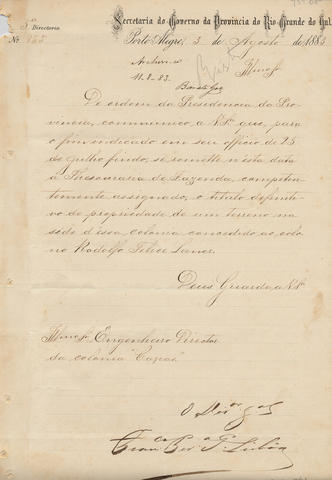 Secretaria do Governo da Provincia do Rio Grande do Sul
3ª Directoria
Nº
Porto Alegre, 3 de Agosto de 1883
11-8-83.
Illmo Sr.
De ordem da Presidencia da Pro-
vincia, communico a V.Sª que, para
o fim indicado em seu officio de 23
de Julho findo, se remette n'esta data
á Thesouraria de Fazenda, competen-
temente assignado, o titulo definiti-
vo de propriedade de um terreno na
séde d'essa colonia concedido ao colo-
no Rodolfo Felice
Deus Guarde a V.Sª
Illmo Sr. Engenheiro Director
da colonia "Caxias"
O Dir.or g.al